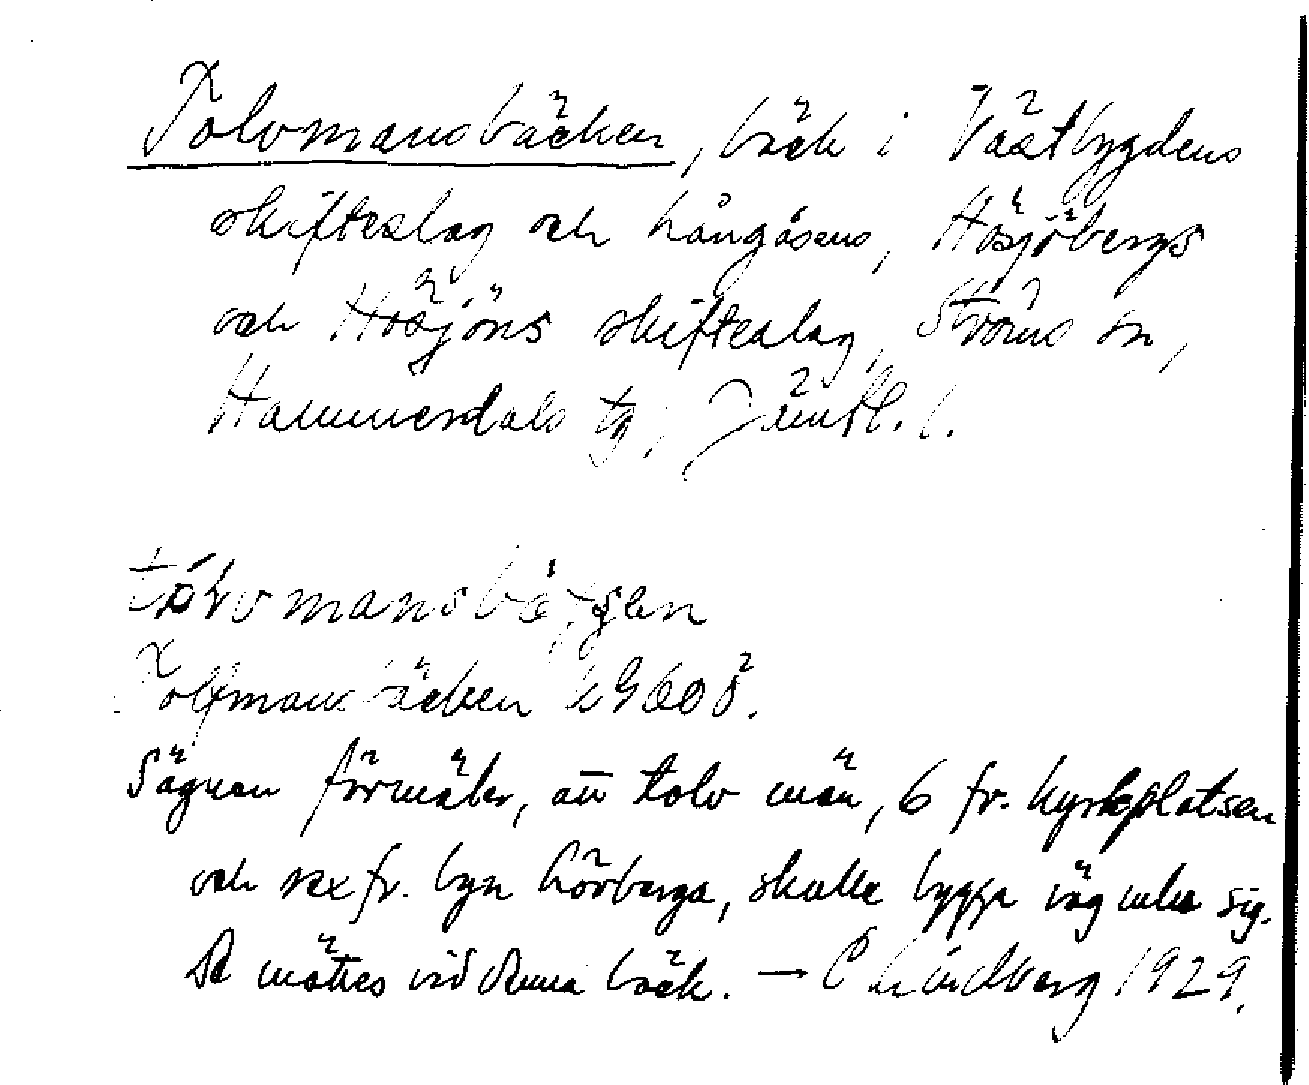 Tolvmansbäcken, bäck i Västbygdens
skifteslag och Långåsens, Häsjöbergs
och Häsjöns skifteslag, Ströms sn,
Hammerdals tg, Jämtl. l.
Tolfmansbäcken
Sägnen förmäler, att tolv män, 6 fr. kyrkplatsen
och sex fr. byn Lövberga, skulle bygga väg mellan sig.
De möttes vid denna bäck. — C Lindberg 1929.